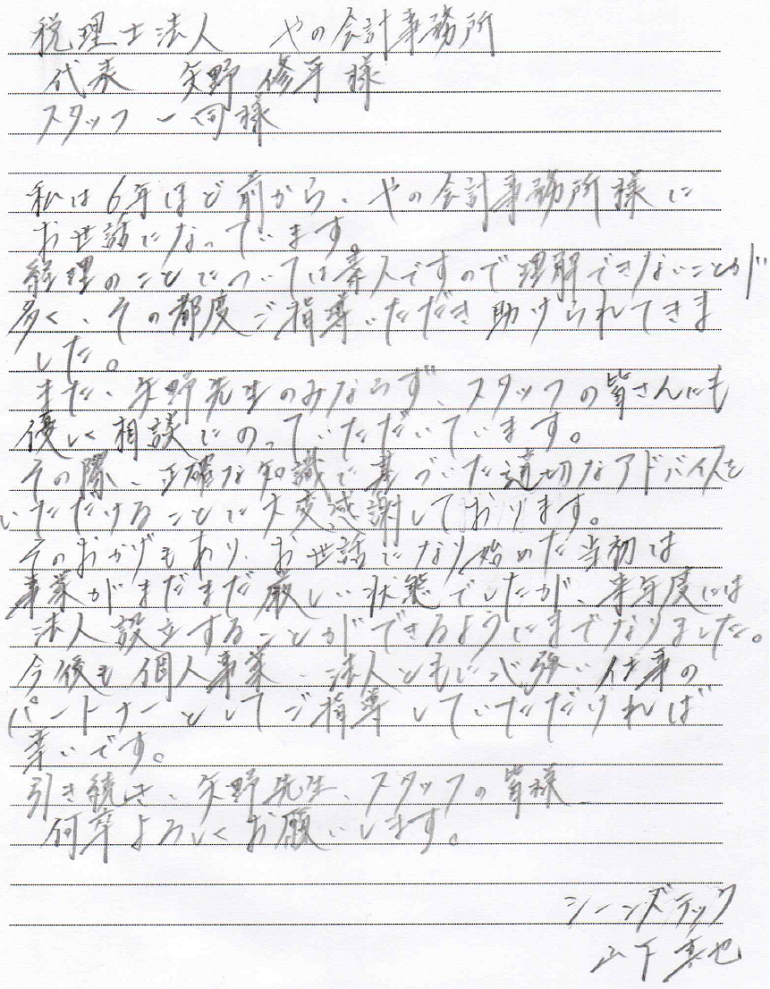 税理士法人 やの会計事務所
代表 矢野 修平 様
スタッフ 一同様
私は6年ほど前から、やの会計事務所様に
お世話になっています。
経理のことについては素人ですので理解できないことが
多く、その都度ご指導いただき助けられてきま
した。
また、矢野先生のみならず、スタッフの皆さんにも
優しく相談にのっていただいています。
その際、正確な知識で基づいた適切なアドバイスを
いただけることに大変感謝しております。
そのおかげもあり、お世話になり始めた当初は
事業がまだまだ厳しい状態でしたが、来年度には
法人設立することができるようにまでなりました。
今後も個人事業、法人ともに心強い仕事の
パートナーとしてご指導していただければ
幸いです。
引き続き、矢野先生、スタッフの皆様、
何卒よろしくお願いします。
シーンズテック
山下 真也